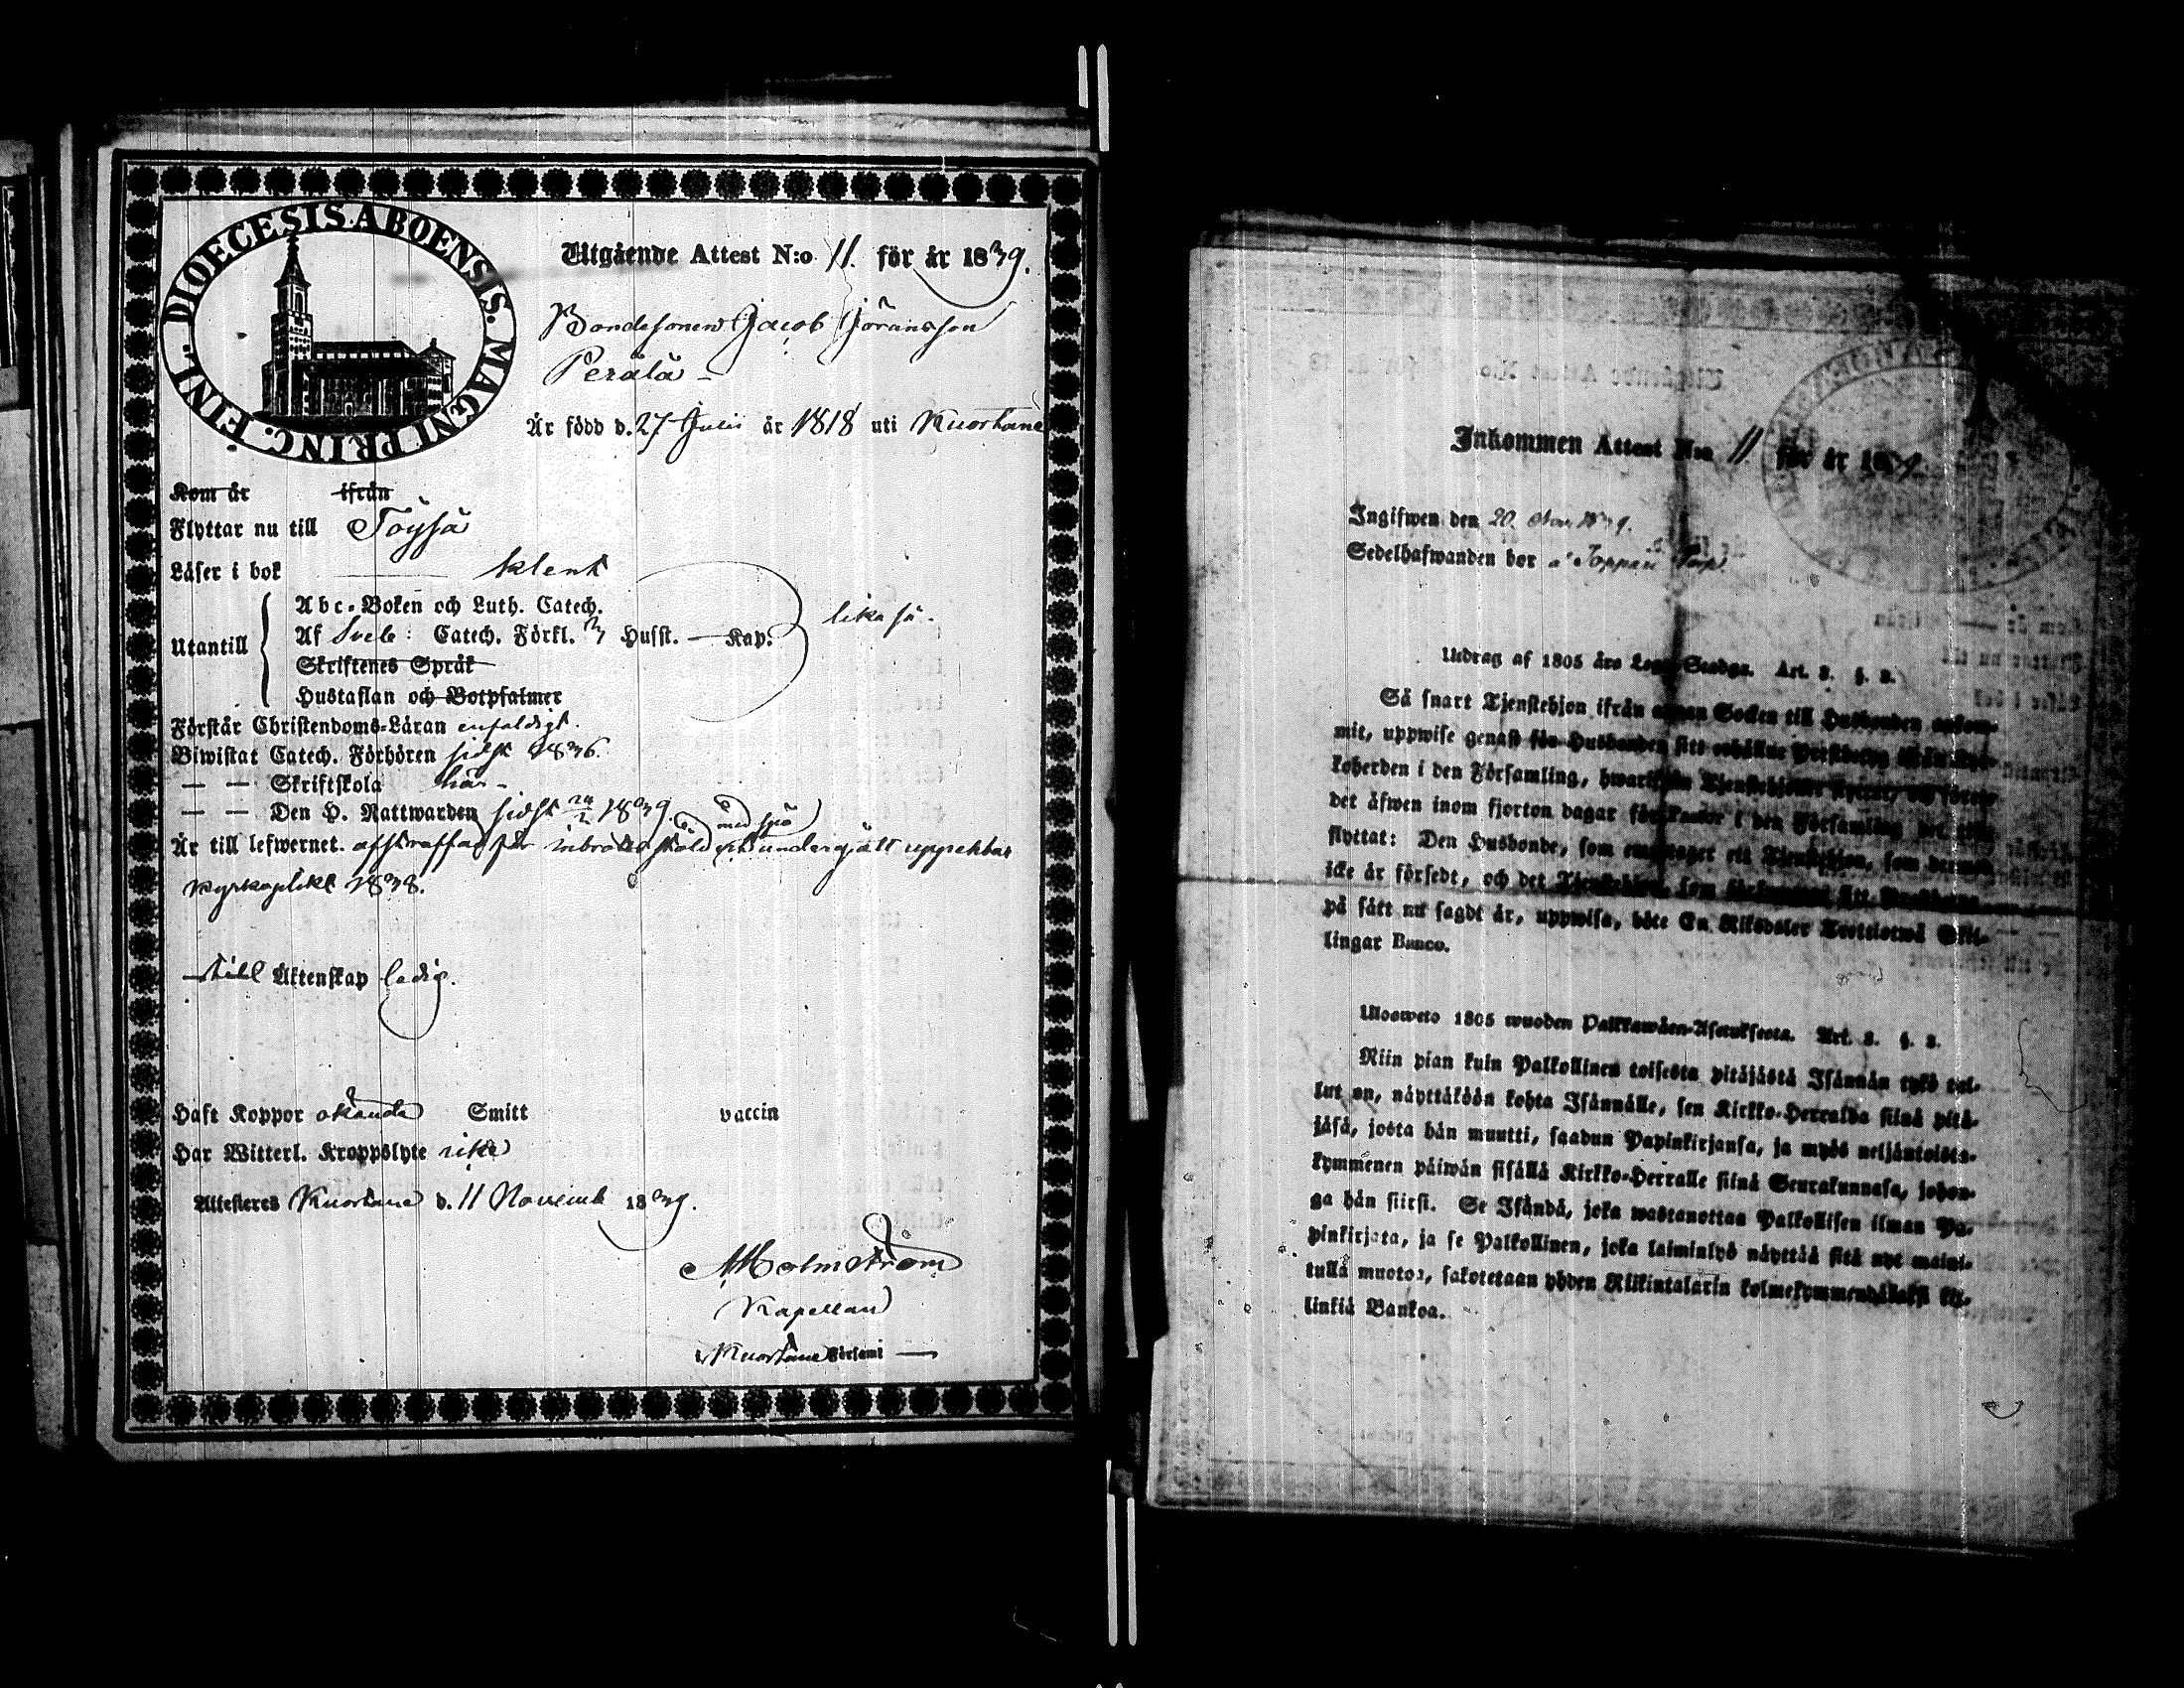 DIOECESIS ABOENSIS. MAGNI PRINC. FINL.
Utgående Attest N:o 11. för år 1839.
Bondesonen Jacob Jöransson
Perälä -
Är född d. 27 Julii år 1818 uti Kuortane
Kom år ifrån
Flyttar nu till Töysä
Läser i bok klent
Utantill
Abc-Boken och Luth. Catech.
Af Sveb: Catech. Förkl. 3 Husst. — Kap. lika så.
Skriftenes Språk
Hustaflan och Botpsalmer
Förstår Christendoms-Läran enfaldigt.
Biwistat Catech. Förhören sidst 1836.
— — Skriftskola här -
— — Den H. Nattwarden sidst 1839.
med spö
Är till lefwernet afstraffad för inbrotts stöld och undergått uppenbar
kyrkoplikt 1838.
till Äktenskap ledig.
Haft Koppor okända Smitt vaccin
Har Witterl. Kroppslyte icke
Attesteres Kuortane d. 11 Novemb 1839.
Holmström
Kapellan
i Kuortane Församl —
Inkommen Attest N:o 11 för år 1839.
Ingifwen den 20 Nov 1839.
Sedelhafwanden bor
Utdrag af 1805 års Lego-Stadga. Art. 3. §. 2.
Så snart Tjenstehjon ifrån annan Socken till Husbonden ankom-
mit, uppwise genast för Husbonden sitt erhållne Prestbetyg
koherden i den Församling, hwarifrån Tjenstehjonet flyttat, och
det äfwen inom fjorton dagar för Pastor i den Församling det
flyttat: Den Husbonde, som emottager ett Tjenstehjon, som dermed
icke är försedt, och det Tjenstehjon, som försummar att Prestbetyg
på sätt nu sagdt är, uppwisa, böte En Riksdaler Trettiotwå Skil-
lingar Banco.
Ulosweto 1805 wuoden Palkkawäen-Asetuksesta. Art. 3. §. 2.
Niin pian kuin Palkollinen toisesta pitäjästä Isännän tykö tul-
lut on, näyttäköön kohta Isännälle, sen Kirkko-Herralda siinä pitä-
jäsä, josta hän muutti, saadun Papinkirjansa, ja myös neljäntoista-
kymmenen päiwän sisällä Kirkko-Herralle siinä Seurakunnasa, johon-
ga hän siirsi. Se Isändä, joka wastanottaa Palkollisen ilman Pa-
pinkirjata, ja se Palkollinen, joka laiminlyö näyttää sitä nyt maini-
tulla muotoa, sakotetaan yhden Riikintalarin kolmekymmendäkaksi kil-
linkiä Bankoa.